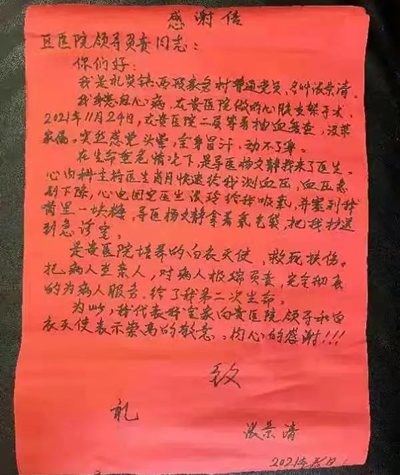 感谢信
县医院领导负责同志：
你们好：
我是礼贤镇西段家务村普通党员，名叫张景清。
我本患冠心病，在贵医院做的心脏支架手术，
2021年11月24日，在贵医院二层等着抽血复查，没等
来福，突然感觉头晕，全身冒汗，动不了等。
在生命垂危情况下，是导医杨文静找来了医生，
心内科主持医生肖月快速给我测血压，血压急
剧下降，心电图室医生凌玲给我吸氧，并塞到我
嘴里一块糖，导医杨文静拿着氧气袋，把我护送
到急诊室。
是贵医院培养的白衣天使，救死扶伤。
把病人当亲人，对病人极端负责，完全彻底
的为病人服务，给了我第二次生命。
为此，我代表我全家向贵医院领导和白
衣天使表示崇高的敬意，内心的感谢!!!
致
礼
张景清
2021年